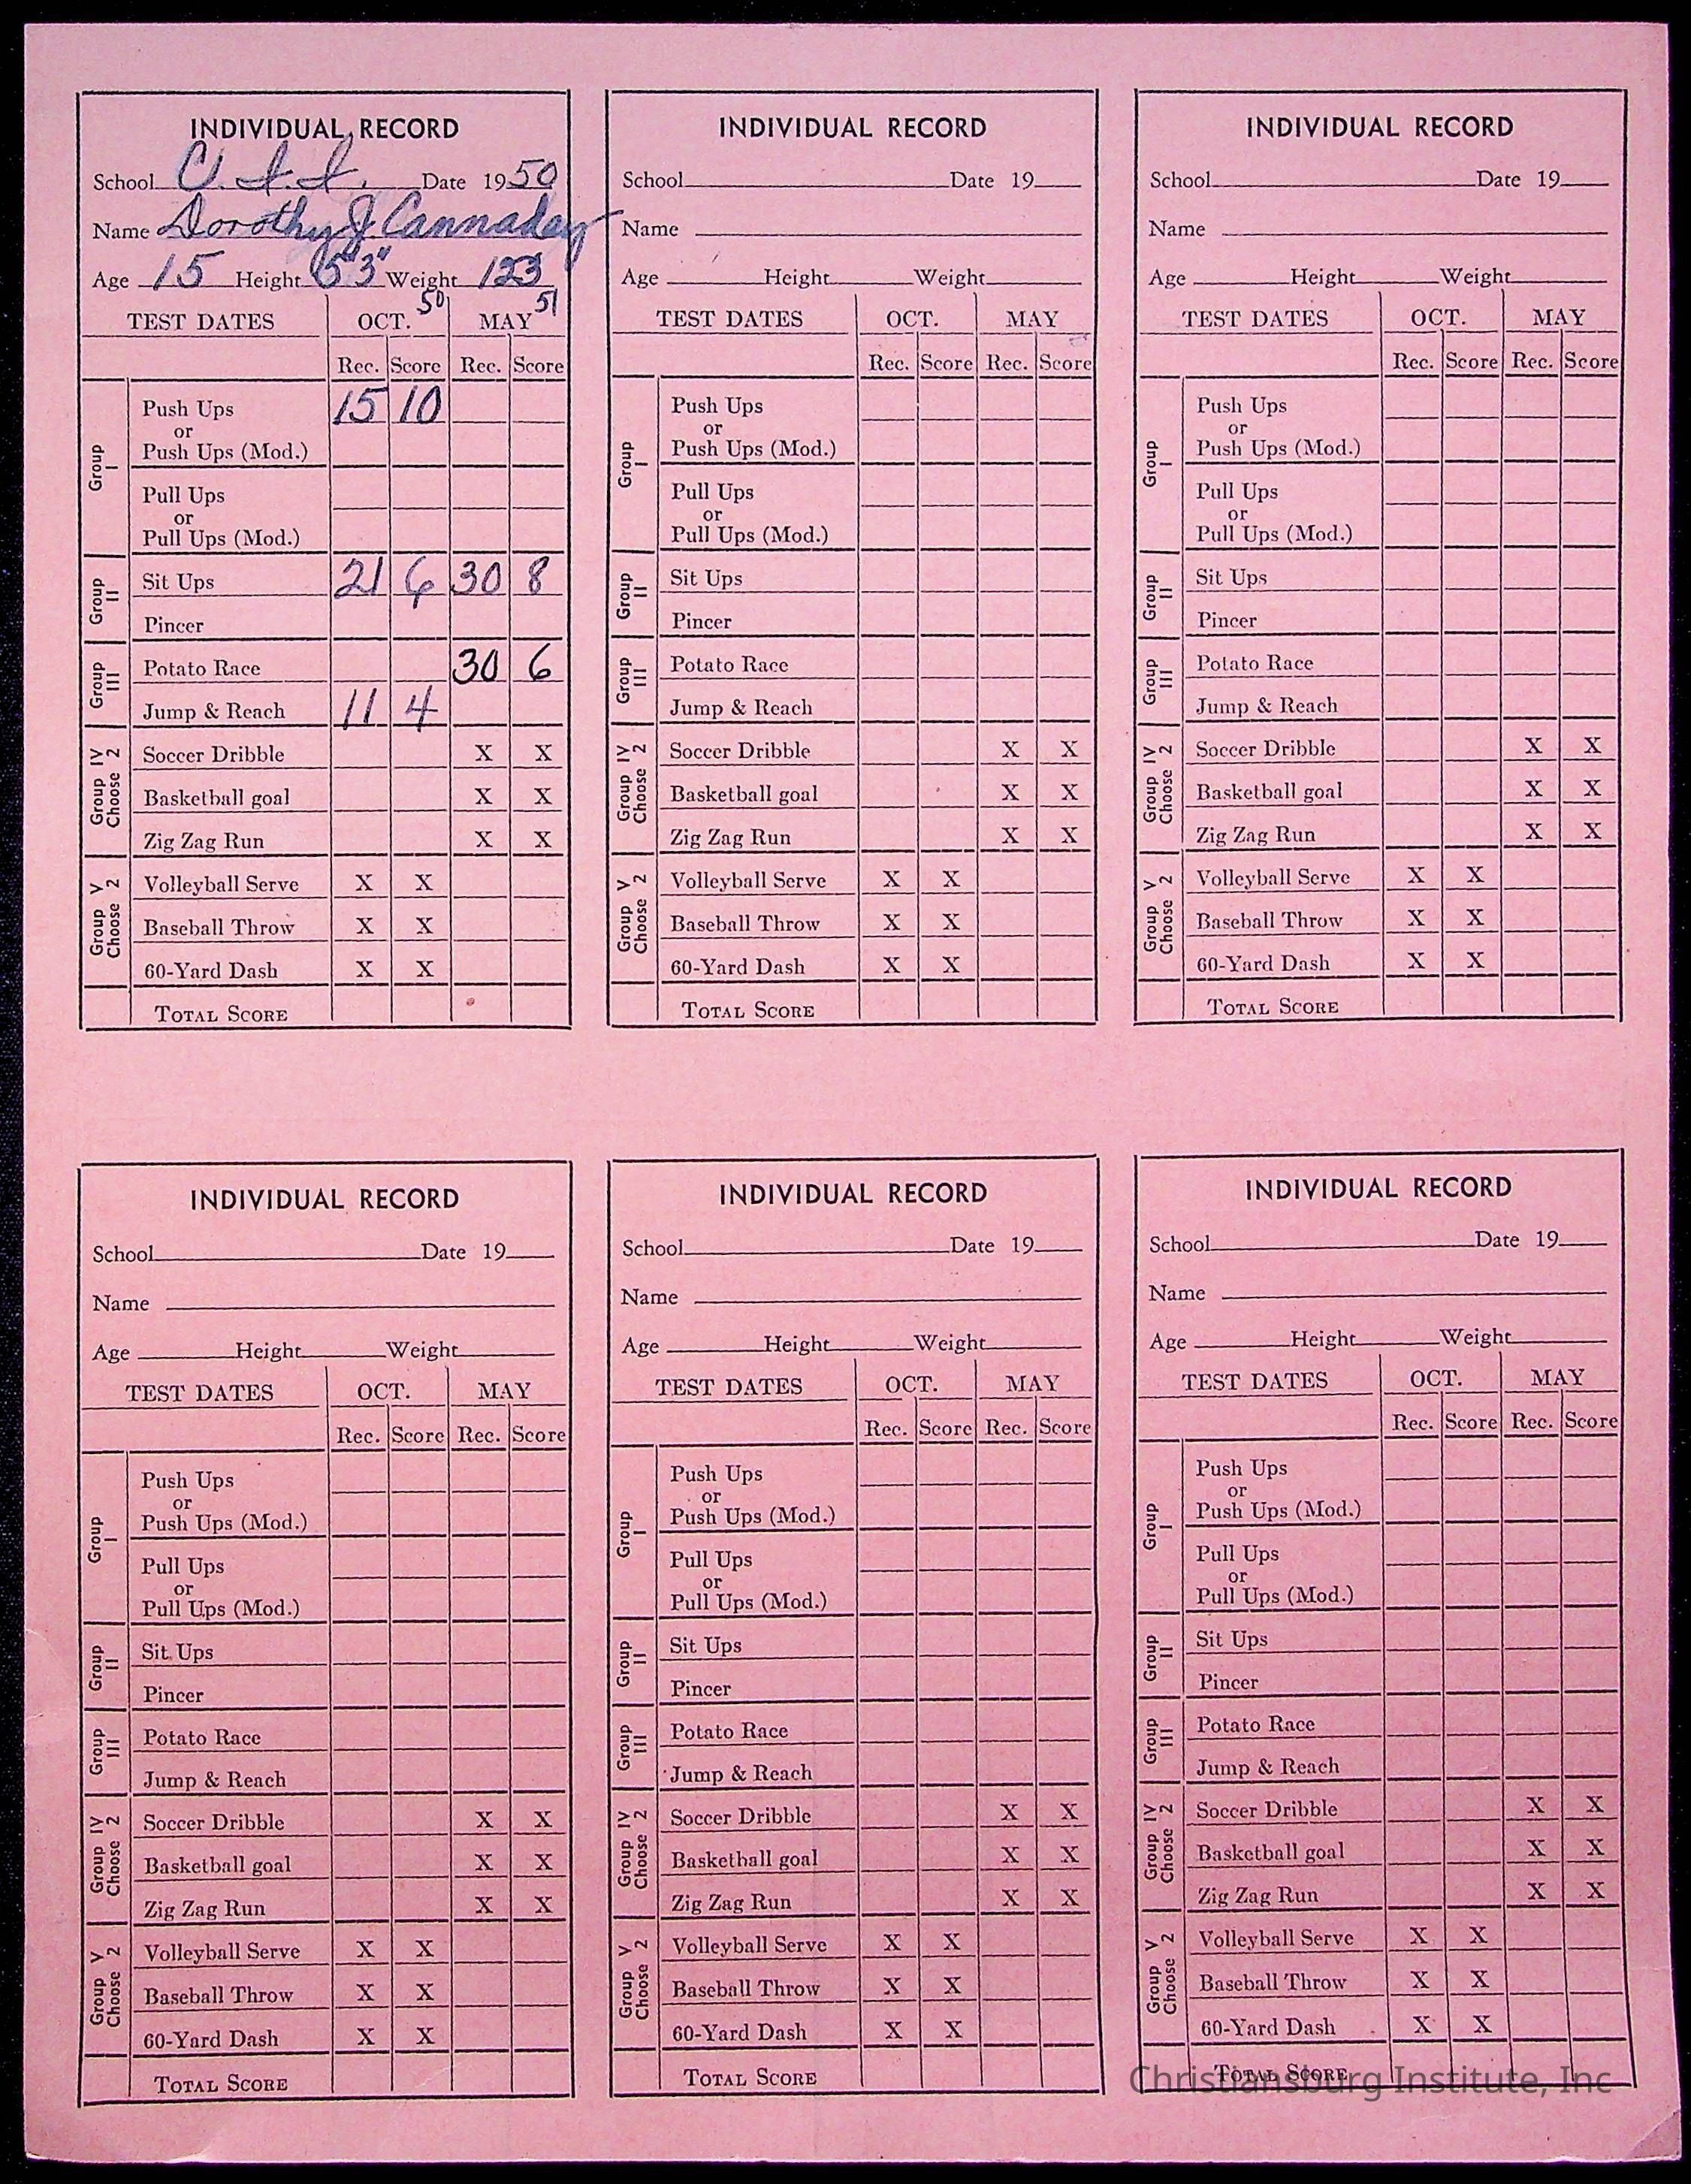 INDIVIDUAL RECORD
School C. I. I. Date 1950
Name Dorothy J. Cannaday
Age 15 Height 5'3" Weight 123
TEST DATES OCT. 50 MAY 51
Rec. Score Rec. Score
Group I
Push Ups 15 10
or
Push Ups (Mod.)
Pull Ups
or
Pull Ups (Mod.)
Group II
Sit Ups 21 6 30 8
Pincer
Group III
Potato Race 30 6
Jump & Reach 11 4
Group IV Choose 2
Soccer Dribble X X
Basketball goal X X
Zig Zag Run X X
Group V Choose 2
Volleyball Serve X X
Baseball Throw X X
60-Yard Dash X X
TOTAL SCORE
INDIVIDUAL RECORD
School Date 19
Name
Age Height Weight
TEST DATES OCT. MAY
Rec. Score Rec. Score
Group I
Push Ups
or
Push Ups (Mod.)
Pull Ups
or
Pull Ups (Mod.)
Group II
Sit Ups
Pincer
Group III
Potato Race
Jump & Reach
Group IV Choose 2
Soccer Dribble X X
Basketball goal X X
Zig Zag Run X X
Group V Choose 2
Volleyball Serve X X
Baseball Throw X X
60-Yard Dash X X
TOTAL SCORE
INDIVIDUAL RECORD
School Date 19
Name
Age Height Weight
TEST DATES OCT. MAY
Rec. Score Rec. Score
Group I
Push Ups
or
Push Ups (Mod.)
Pull Ups
or
Pull Ups (Mod.)
Group II
Sit Ups
Pincer
Group III
Potato Race
Jump & Reach
Group IV Choose 2
Soccer Dribble X X
Basketball goal X X
Zig Zag Run X X
Group V Choose 2
Volleyball Serve X X
Baseball Throw X X
60-Yard Dash X X
TOTAL SCORE
INDIVIDUAL RECORD
School Date 19
Name
Age Height Weight
TEST DATES OCT. MAY
Rec. Score Rec. Score
Group I
Push Ups
or
Push Ups (Mod.)
Pull Ups
or
Pull Ups (Mod.)
Group II
Sit Ups
Pincer
Group III
Potato Race
Jump & Reach
Group IV Choose 2
Soccer Dribble X X
Basketball goal X X
Zig Zag Run X X
Group V Choose 2
Volleyball Serve X X
Baseball Throw X X
60-Yard Dash X X
TOTAL SCORE
INDIVIDUAL RECORD
School Date 19
Name
Age Height Weight
TEST DATES OCT. MAY
Rec. Score Rec. Score
Group I
Push Ups
or
Push Ups (Mod.)
Pull Ups
or
Pull Ups (Mod.)
Group II
Sit Ups
Pincer
Group III
Potato Race
Jump & Reach
Group IV Choose 2
Soccer Dribble X X
Basketball goal X X
Zig Zag Run X X
Group V Choose 2
Volleyball Serve X X
Baseball Throw X X
60-Yard Dash X X
TOTAL SCORE
INDIVIDUAL RECORD
School Date 19
Name
Age Height Weight
TEST DATES OCT. MAY
Rec. Score Rec. Score
Group I
Push Ups
or
Push Ups (Mod.)
Pull Ups
or
Pull Ups (Mod.)
Group II
Sit Ups
Pincer
Group III
Potato Race
Jump & Reach
Group IV Choose 2
Soccer Dribble X X
Basketball goal X X
Zig Zag Run X X
Group V Choose 2
Volleyball Serve X X
Baseball Throw X X
60-Yard Dash X X
TOTAL SCORE
Christiansburg Institute, Inc